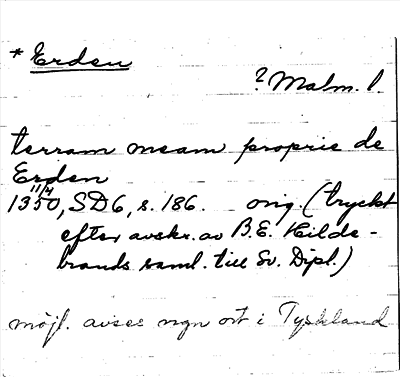 * Erden
? Malm. l.
terram meam proprie de
Erden
11/4
1350, SD6, s. 186. orig. (tryckt
efter avskr. av B.E. Hilde-
brands saml. till Sv. Dipl.)
möjl. avses ngn ort i Tyskland